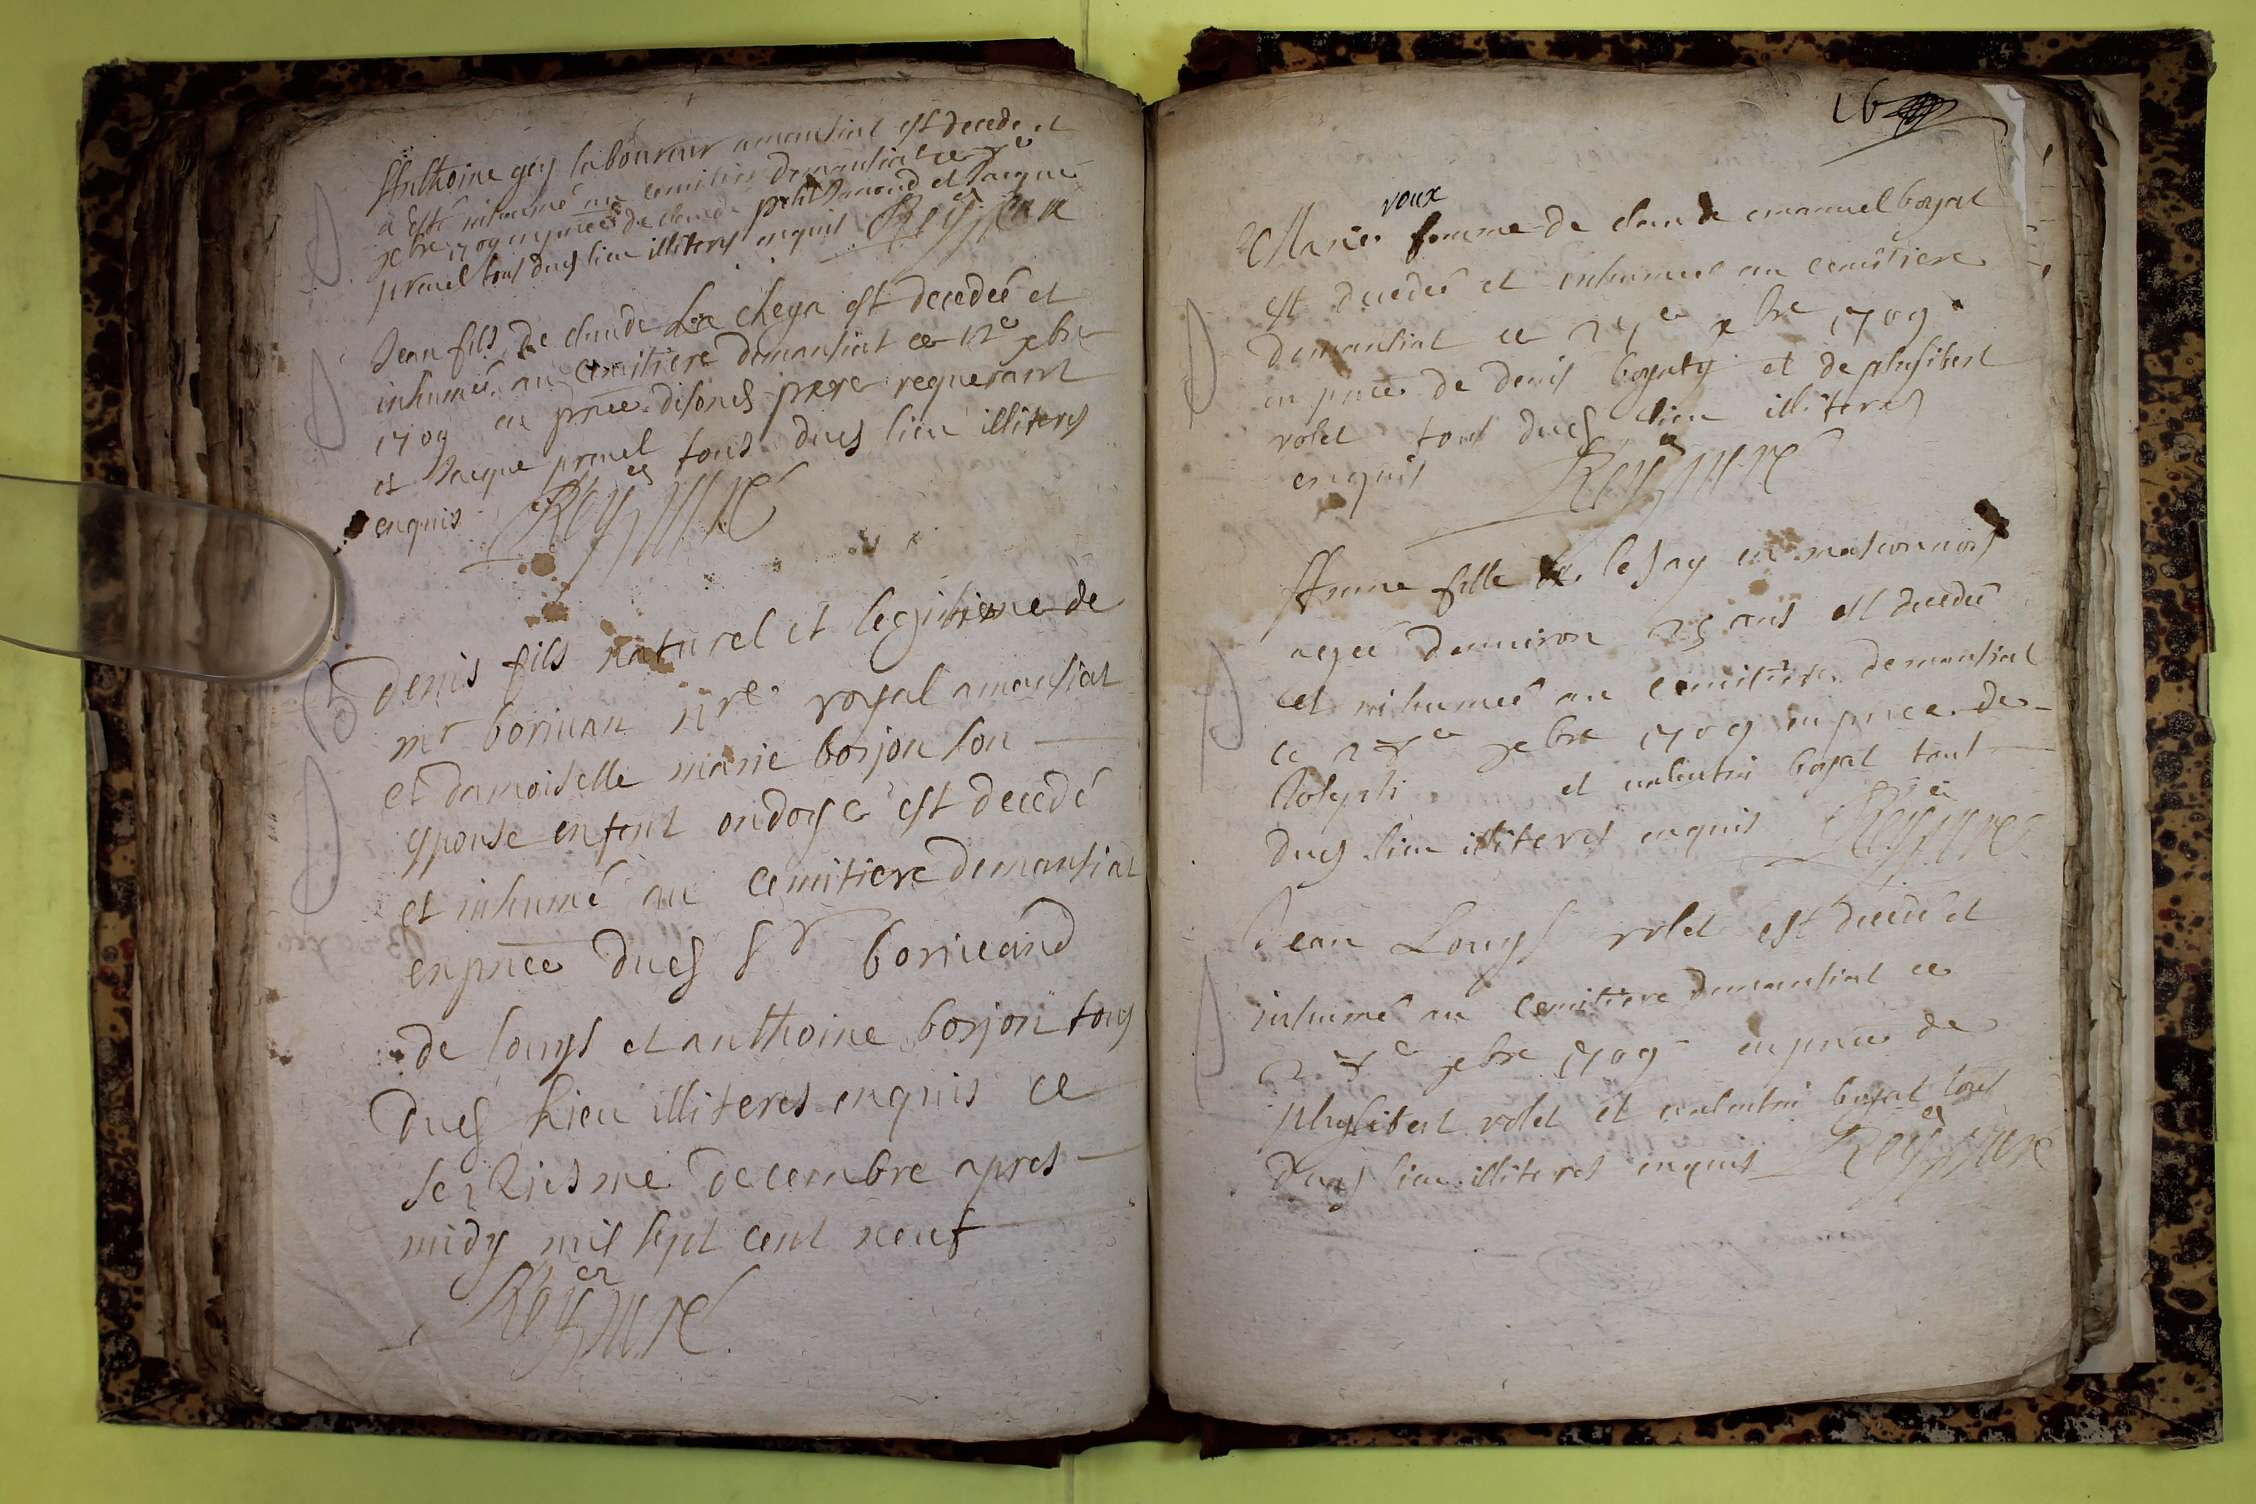 Anthoine gey laboureur a mansiat est decede et
a esté inhumé au cemitiere demansiat ce
xbre 1709 en pnce de claude petit Jmond et Jacque
pruel tous dud lieu illiteres enquis Rey curé
Jean fils de claude La cheya est decedéé et
inhumé au cemitiere demansiat ce 12e xbre
1709 en pnce disond pere requerant
et Jacque pruel tous dud lieu illiteres
enquis Rey curé
denis fils naturel et legitime de
mr borivan nre royal a mansiat
et damoiselle marie borjon son
epouse enfent ondoyé est decedé
et inhumé au cemitiere demansiat
en pnce dud Sr boriveand
de louys et anthoine borjon tous
dud lieu illiteres enquis ce
seziesme decembre apres
midy mil sept cent neuf
Rey curé
16
roux
Marie femme de claude emanuel boyat
est decedéé et inhumeé au cemitiere
demansiat ce xbre 1709
en pnce de denis et de phylibert
rolet tous dud lieu illiteres
enquis Rey curé
Anne fille de le Jay en masconnois
ageé denuiron 25 ans est decedeé
et inhumeé au cemitiere demansiat
ce xbre 1709 en pnce de
Joseph et valentin boyat tous
dud lieu illiteres enquis Rey curé
Jean Louys rolet est decede et
inhumé au cemitiere demansiat ce
xbre 1709 en pnce de
phylibert rolet et valentin boyat tous
dud lieu illiteres enquis Rey curé